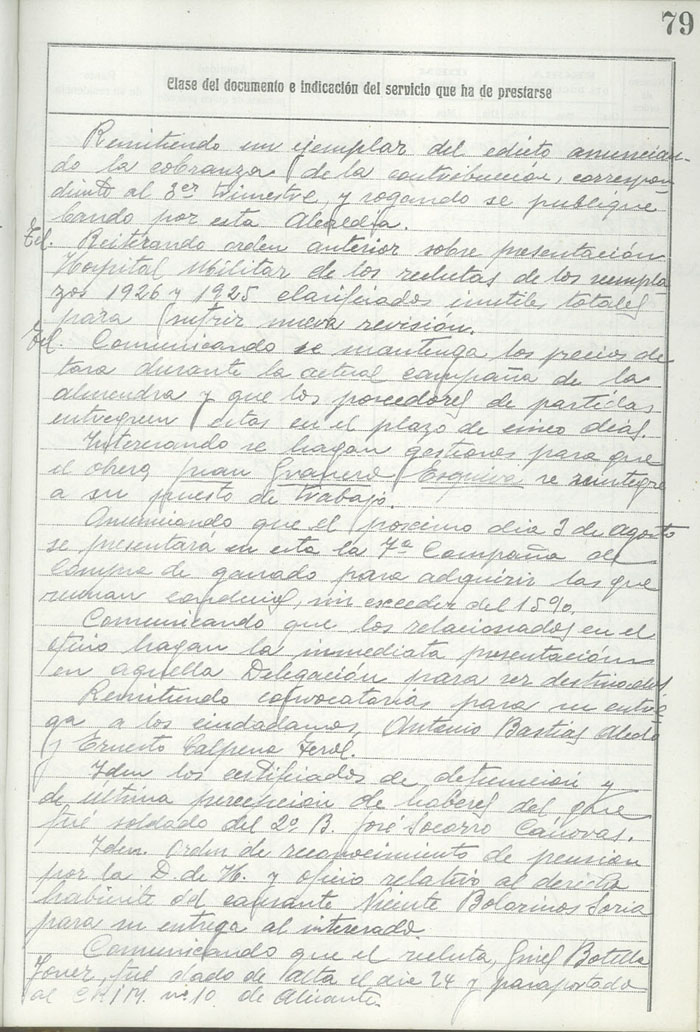 79
Clase del documento e indicación del servicio que ha de prestarse
Remitiendo un ejemplar del edicto anuncian-
do la cobranza de la contribución, correspon
diente al 3er trimestre, y rogando se publique
bando por esta Alcaldía.
Tel. Reiterando orden anterior sobre presentación
Hospital Militar de los reclutas de los reempla
zos 1926 y 1925 clasificados inutiles totales
para sufrir nueva revisión.
Tel. Comunicando se mantenga los precios de
tasa durante la actual campaña de la
almendra y que los poseedores de partidas
entreguen estas en el plazo de cinco dias.
Interesando se hagan gestiones para que
el obrero Juan Granero Esquiva se reintegre
a su puesto de trabajo.
Anunciando que el proximo dia 3 de Agosto
se presentará en esta la 7ª Campaña de
Compra de ganado para adquirir las que
reunan condcinɡ, sin exceder del 15%.
Comunicando que los relacionados en el
oficio hagan la inmediata presentación
en aquella Delegación para ser destinados
Remitiendo convocatorias para su entre
ga a los ciudadanos, Antonio Bastias Aledo
y Ernesto Calpena Ferol.
Idem los certificados de defuncion y
de última percepcion de haberes del que
fué soldado del 2º B. José Socorro Cánovas.
Idem. Orden de reconocimiento de pension
por la D. de H. y oficio relativo al derecho
habiente del causante Vicente Bolarinos Soria
para su entrega al interesado.
Comunicando que el recluta, Ginés Botella
Jover, fué dado de alta el dia 24 y pasaportado
al C.R.I.M. nº 10. de Alicante.